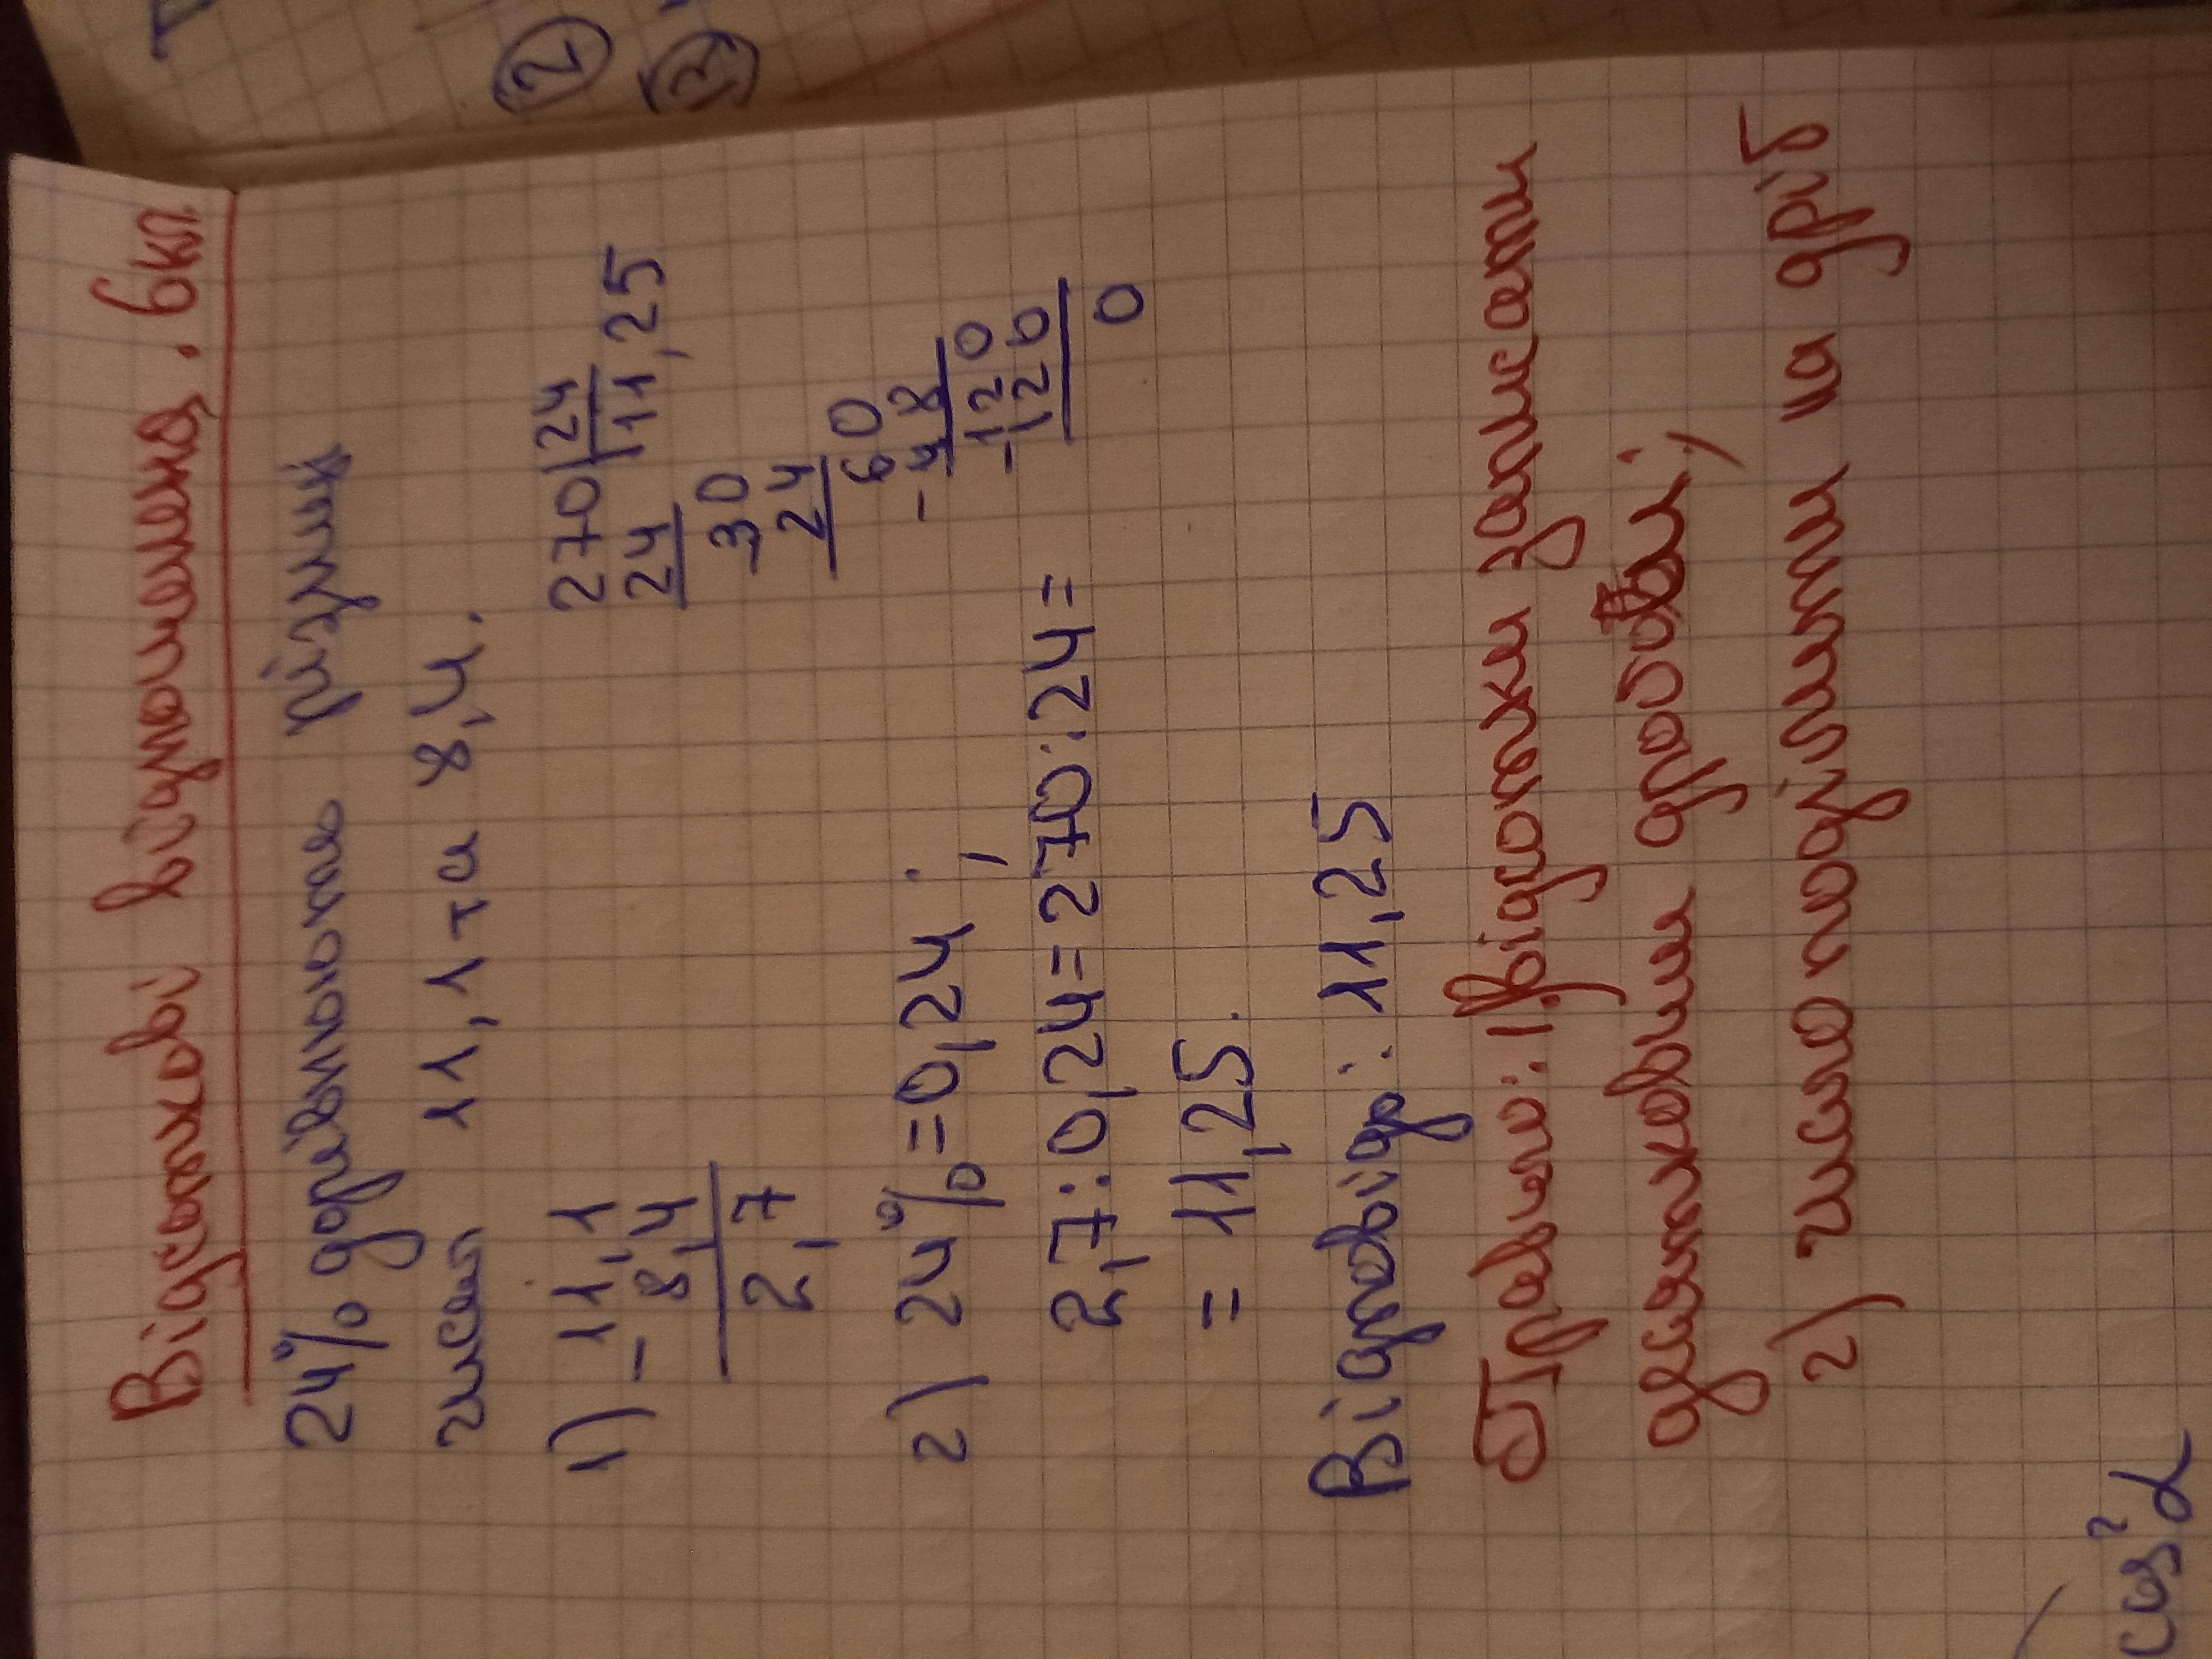 Відсоткові відношення. 6 кл
24% дорівнюють різниці
чисел 11,1 та 8,4.
1) - 11,1
8,4
2,7
270|24
24 |11,25
-30
24
60
-48
-120
120
0
2) 24% = 0,24;
2,7:0,24=270:24=
= 11,25.
Відповідь: 11,25
Правило: 1) відсотки записати
десятковим дробом;
2) число поділити на дріб
cos²α
2
3